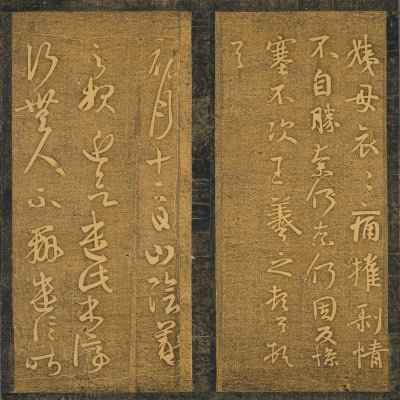 姨母哀哀痛摧剝情
不自勝奈何奈何因反慘
塞不次王羲之頓首頓
首
初月十二日山陰羲
之報近欲遣此書停
行無人不辦遣信昨